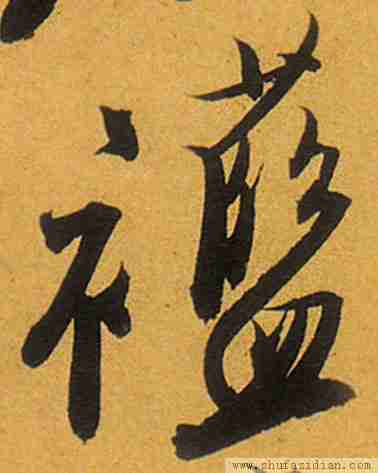 襤
www.shufazidian.com